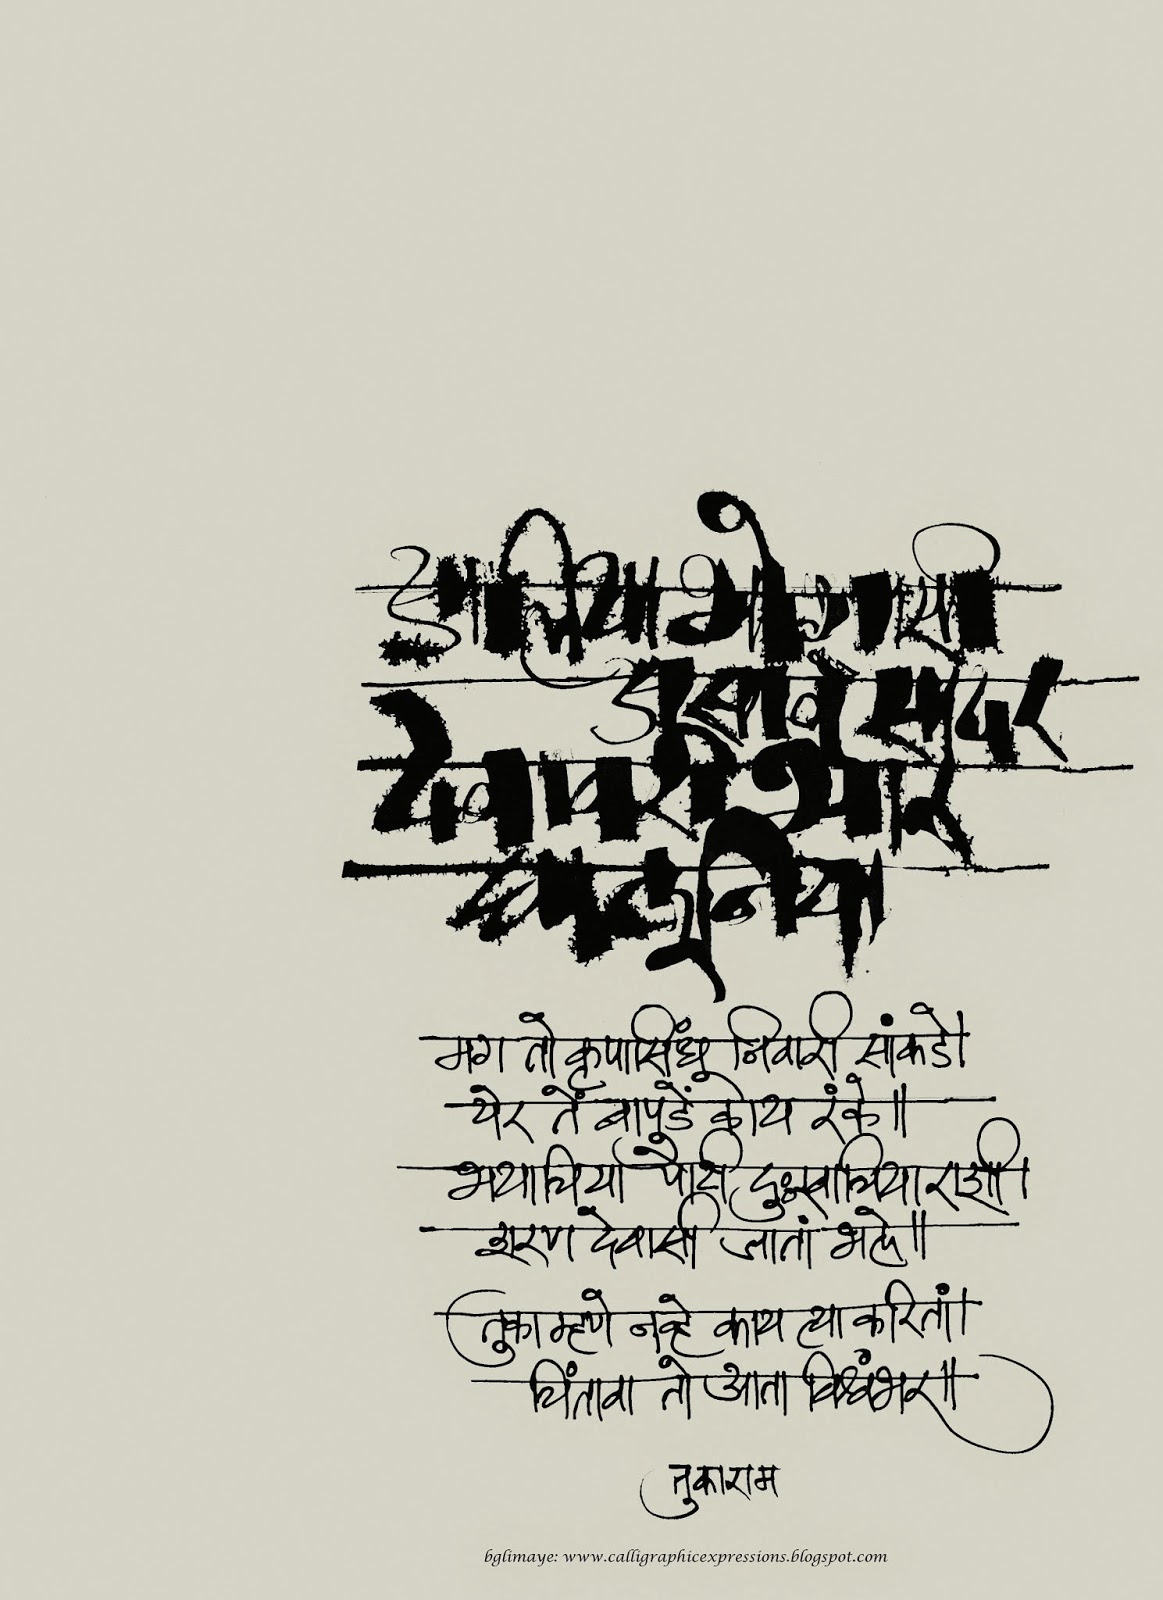 आलिया भोगासी
असावे सादर
देवावरी भार
घालूनिया
मग तो कृपासिंधू निवारी सांकडे।
येर तें बापुडें काय रंके॥
भयाचिया पोटी दुःखाचिया राशी।
शरण देवासी जातां भले॥
तुका म्हणे नव्हे काय त्या करितां।
चिंतावा तो आता विश्वंभर॥
तुकाराम
bglimaye: www.calligraphicexpressions.blogspot.com